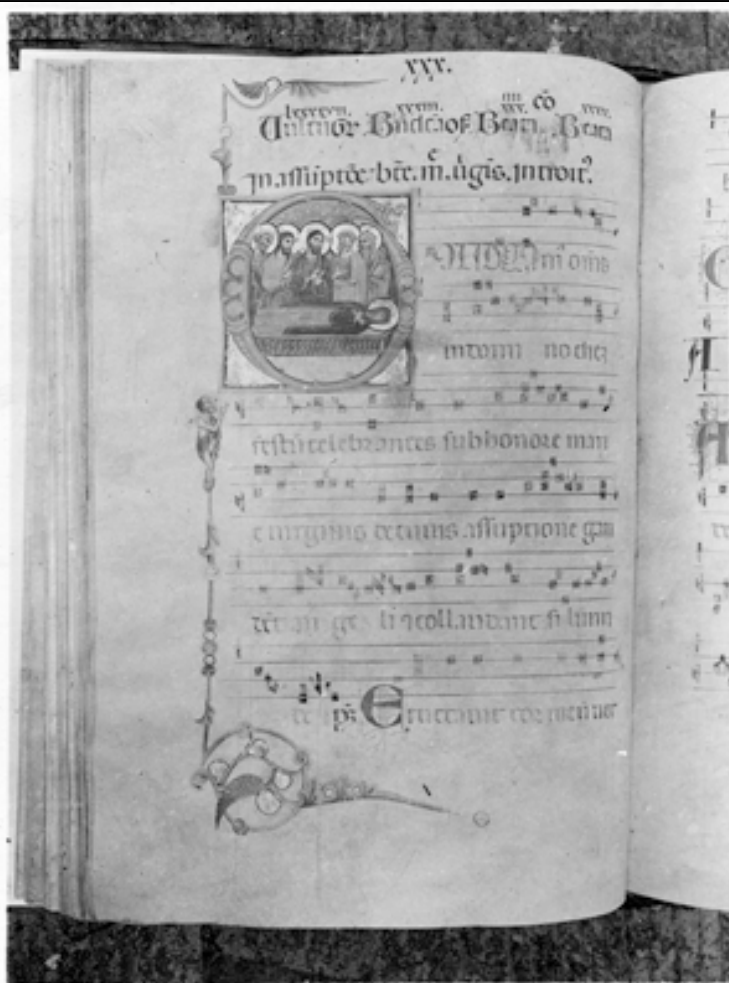 xxx.
lxxxvii. xxxiiii. iiii xxx. cō xxxx.
Bñdcāoꝫ Beati. Beata
Jn assūptōe bt̄e. m̄. ûgīs. introit9.
m̄ om̄s
in domi no diē
festū celebrantes sub honore mari
e virginis de cuius assuptione gau
dēt an ge li ⁊ collaudant fi lium
de p̄s Eructauit cor meū uer